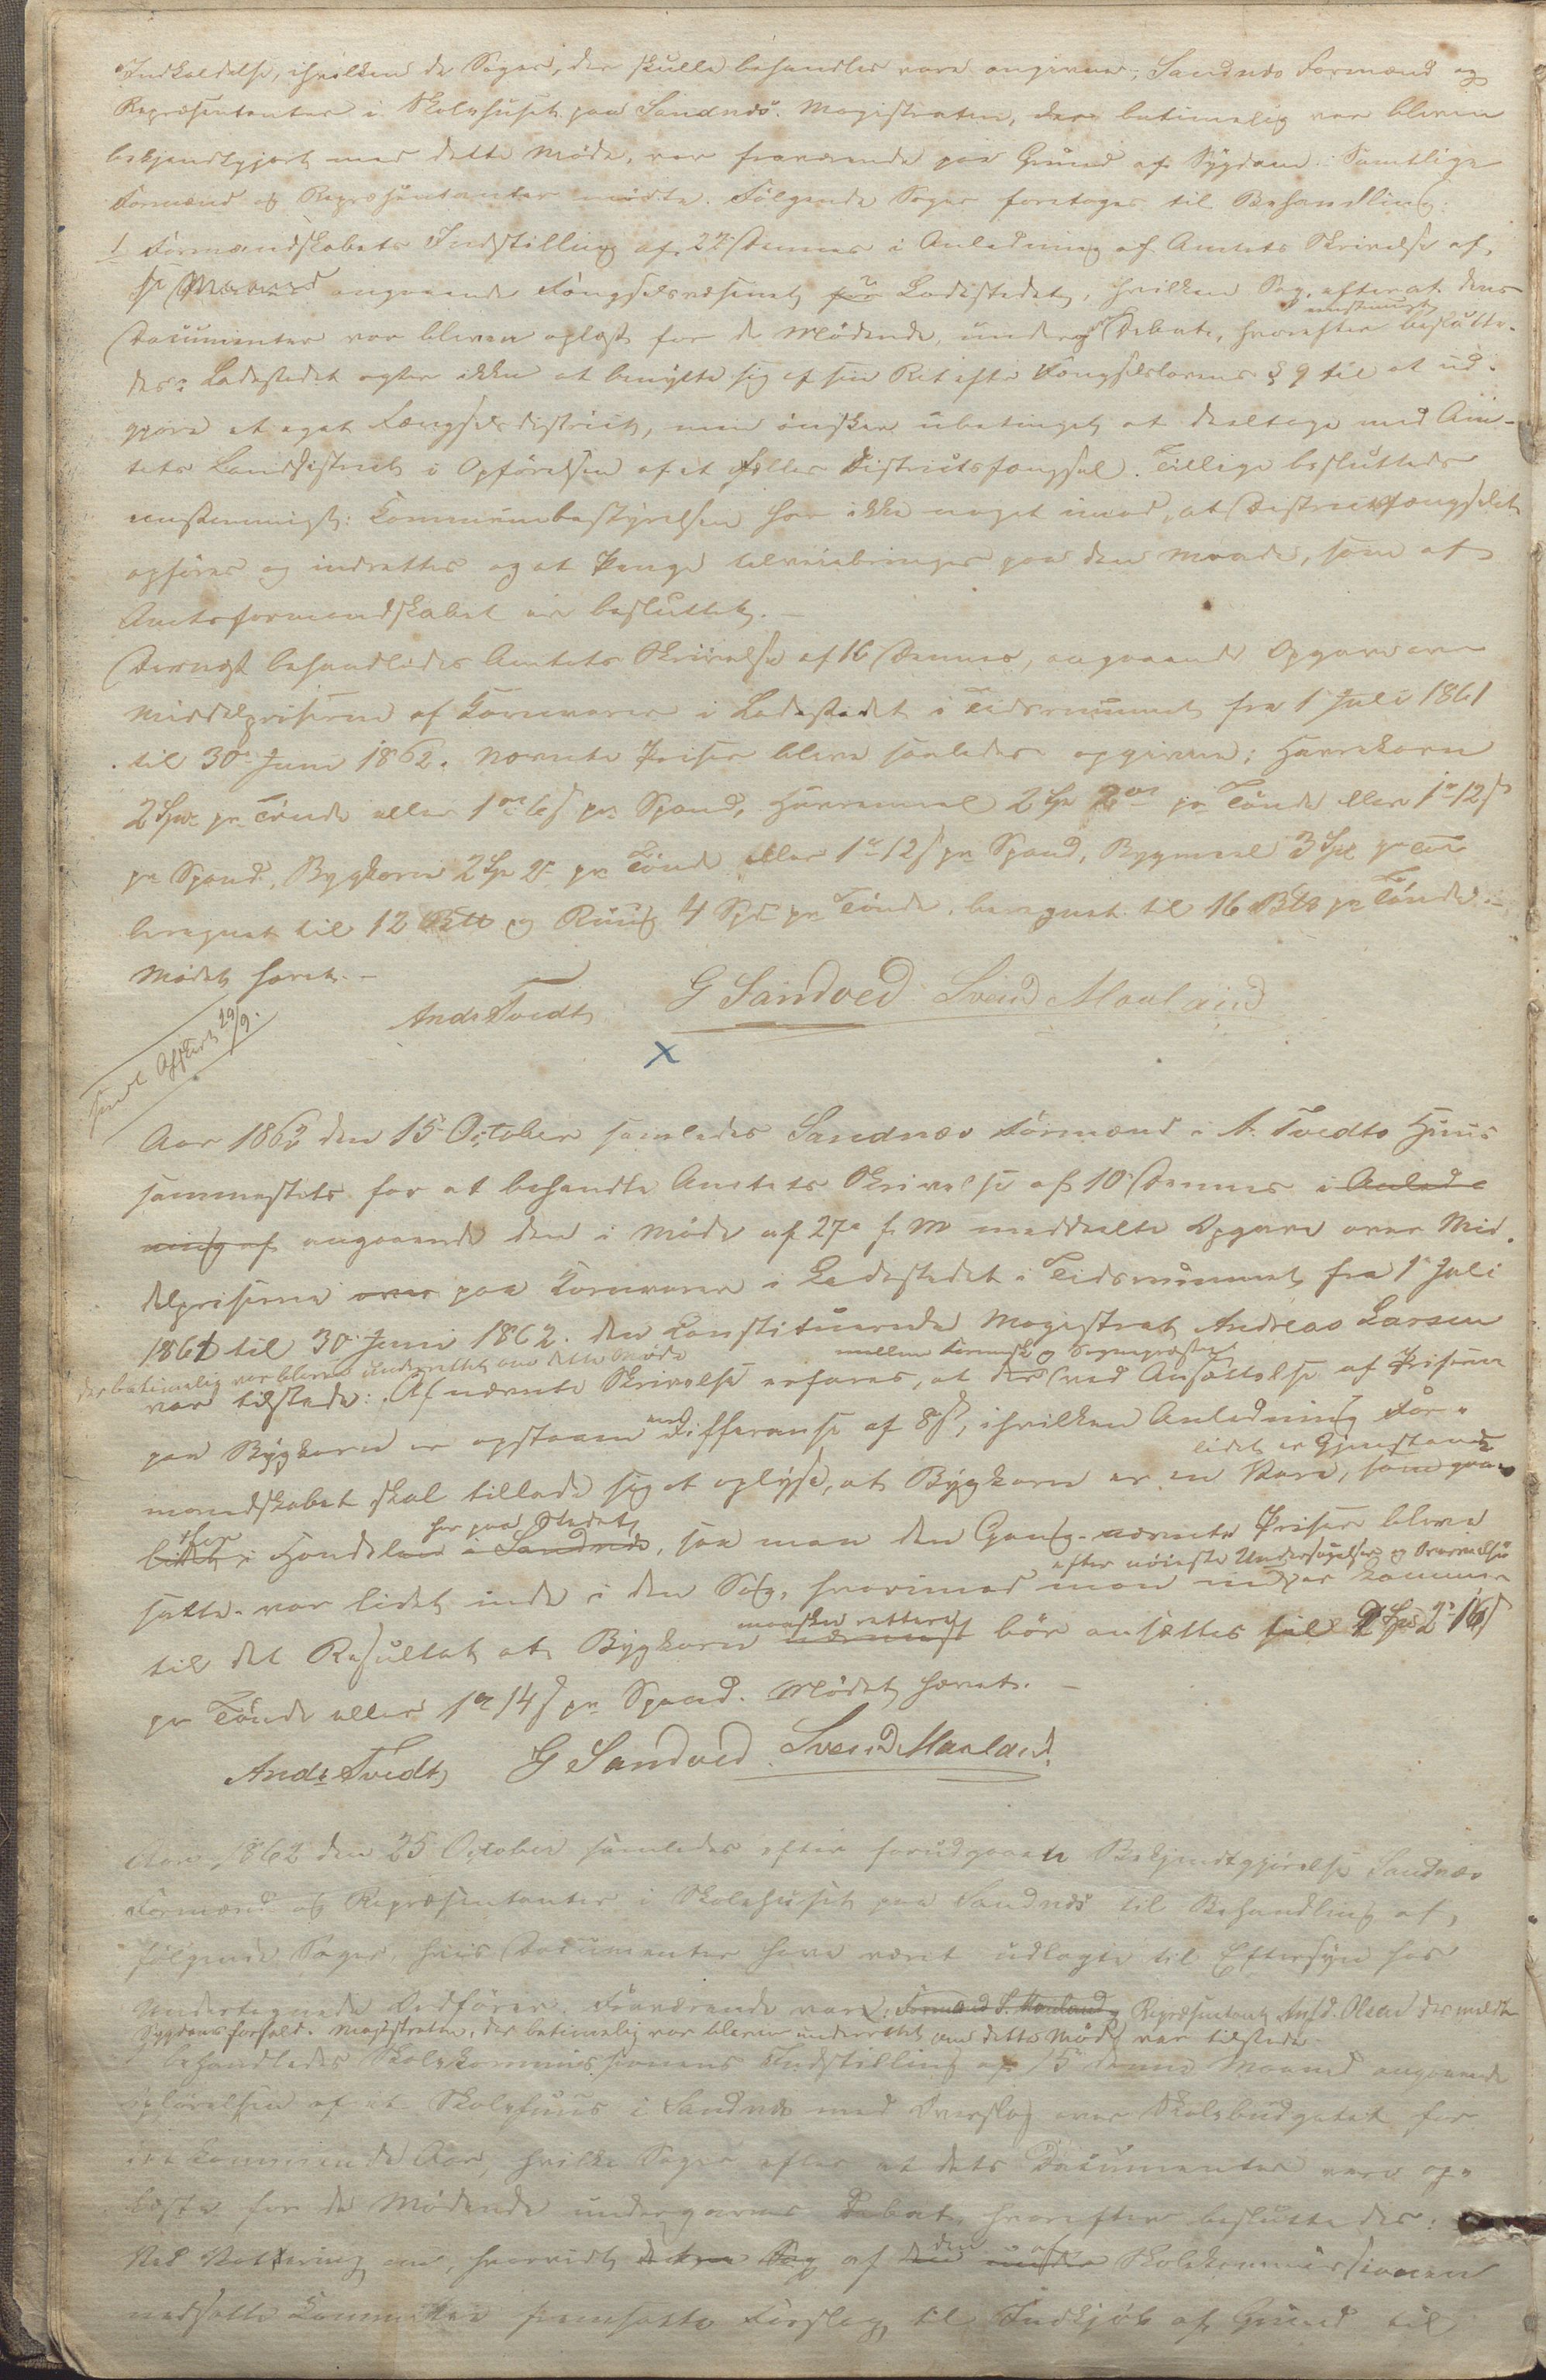 Indkaldelse, i hvilken de Sager, der skulle behandles vare angivne, Sandnæs Formænd og
Repræsentanter i Skolehuset paa Sandnæs. Magistraten, der betimelig var bleven
bekjendtgjort med dette Møde, var fraværende paa Grund af Sygdom. Samtlige
Formænd og Repræsentanter mødte. Følgende Sager foretoges til Behandling:
1 Formandskabets Indstilling af 22 Dennes i Anledning af Amtets Skrivelse af
angaaende Fængselsvæsenet for Ladestedet, hvilken Sag, efterat dens
Documenter var bleven oplæst for de Mødende, undergik Debat, hvorefter enstemmigt beslutte-
des: Ladestedet agter ikke at benytte sig af sin Ret efter Fængselslovens § 9 til at ud-
gjøre et eget Fængselsdistrict, men ønsker ubetinget at deeltage med Am-
tets Landdistrict i Opførelsen af et fælles Districtsfængsel. Tillige besluttedes
enstemmigt: Kommunebestyrelsen har ikke noget imod, at Districtsfængslet
opføres og indrettes og at Penge tilveiebringes paa den Maade, som af
Amtsformandskabet er besluttet. –
Dernæst behandledes Amtets Skrivelse af 16 Dennes, angaaende Opgave over
Middelpriserne af Kornvarer i Ladestedet i Tidsrummet fra 1 Juli 1861
til 30 Juni 1862. Nævnte Priser bleve saaledes opgivne: Havrekorn
2 Spd pr Tønde eller 1 ort 6 s pr Spand, Havremeel 2 Spd 2 ort pr Tønde eller 1 ort 12 s
pr Spand, Bygkorn 2 Spd 2 ort pr Tønde eller 1 ort 12 s pr Spand, Bygmeel 3 Spd pr Tønde
beregnet til 12 og Rug 4 Spd pr Tønde, beregnet til 16 pr Tønde. –
Mødet hævet. –
Andr Tvedt G Sandved Svend Maaland
29/9.
X
Aar 1862 den 15 October samledes Sandnæs Formænd i A. Tvedts Huus
sammesteds for at behandle Amtets Skrivelse af 10 Dennes i Anled-
ning af angaaende den i Møde af 27 f M meddeelte Opgave over Mid-
delpriserne over paa Kornvarer i Ladestedet i Tidsrummet fra 1 Juli
1861 til 30 Juni 1862. Den Constituerede Magistrat Andreas Larsen
der betimelig var bleven underrettet om dette Møde
var tilstede. Af nævnte Skrivelse erfares, at der ved Ansættelse af Priserne
paa Bygkorn er opstaaen en Differanse af 8 s, i hvilken Anledning For-
mandskabet skal tillade sig at oplyse, at Bygkorn er en Vare, som
lidet er Gjenstand
her paa Stedet
for Handelen i Sandnæs, saa man den Gang nævnte Priser bleve
efter nøieste Undersøgelse og Overveielse
satte var lidet inde i den Sag, hvorimod man nu er kommen
til det Resultat at Bygkorn maaske rettere bør ansættes til 2 Spd 2 ort 16 s
pr Tønde eller 1 ort 14 s pr Spand. Mødet hævet. –
Andr Tvedt G Sandved Svend Maaland
Aar 1862 den 25 October samledes efter forudgaaende Bekjendtgjørelse Sandnæs
Formænd og Repræsentanter i Skolehuset paa Sandnæs til Behandling af
følgende Sager, hvis Documenter have været udlagte til Eftersyn hos
undertegnede Ordfører. Fraværende var: Formand S. Maaland Repræsentant Olsen der meldte
Sygdomsforfald. Magistraten, der betimelig var bleven underrettet om dette Møde var tilstede.
behandledes Skolekommissionens Indstilling af 15 denne Maaned angaaende
opførelsen af et Skolehuus i Sandnæs med Overslag over Skolebudgetet for
det kommende Aar, hvilke Sager efter at dets Documenter vare op-
læste for de Mødende undergaves Debat, hvorefter besluttedes:
Ved Votering om, hvorvidt denne Sag af den af Skolekommissionen
nedsatte Kommitee fremsatte Forslag til Indkjøb af Grund til